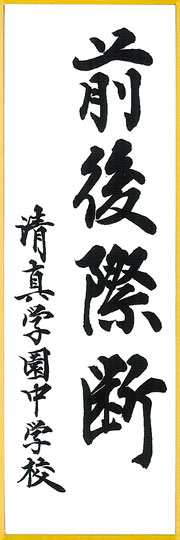 前後際断
清真学園中学校